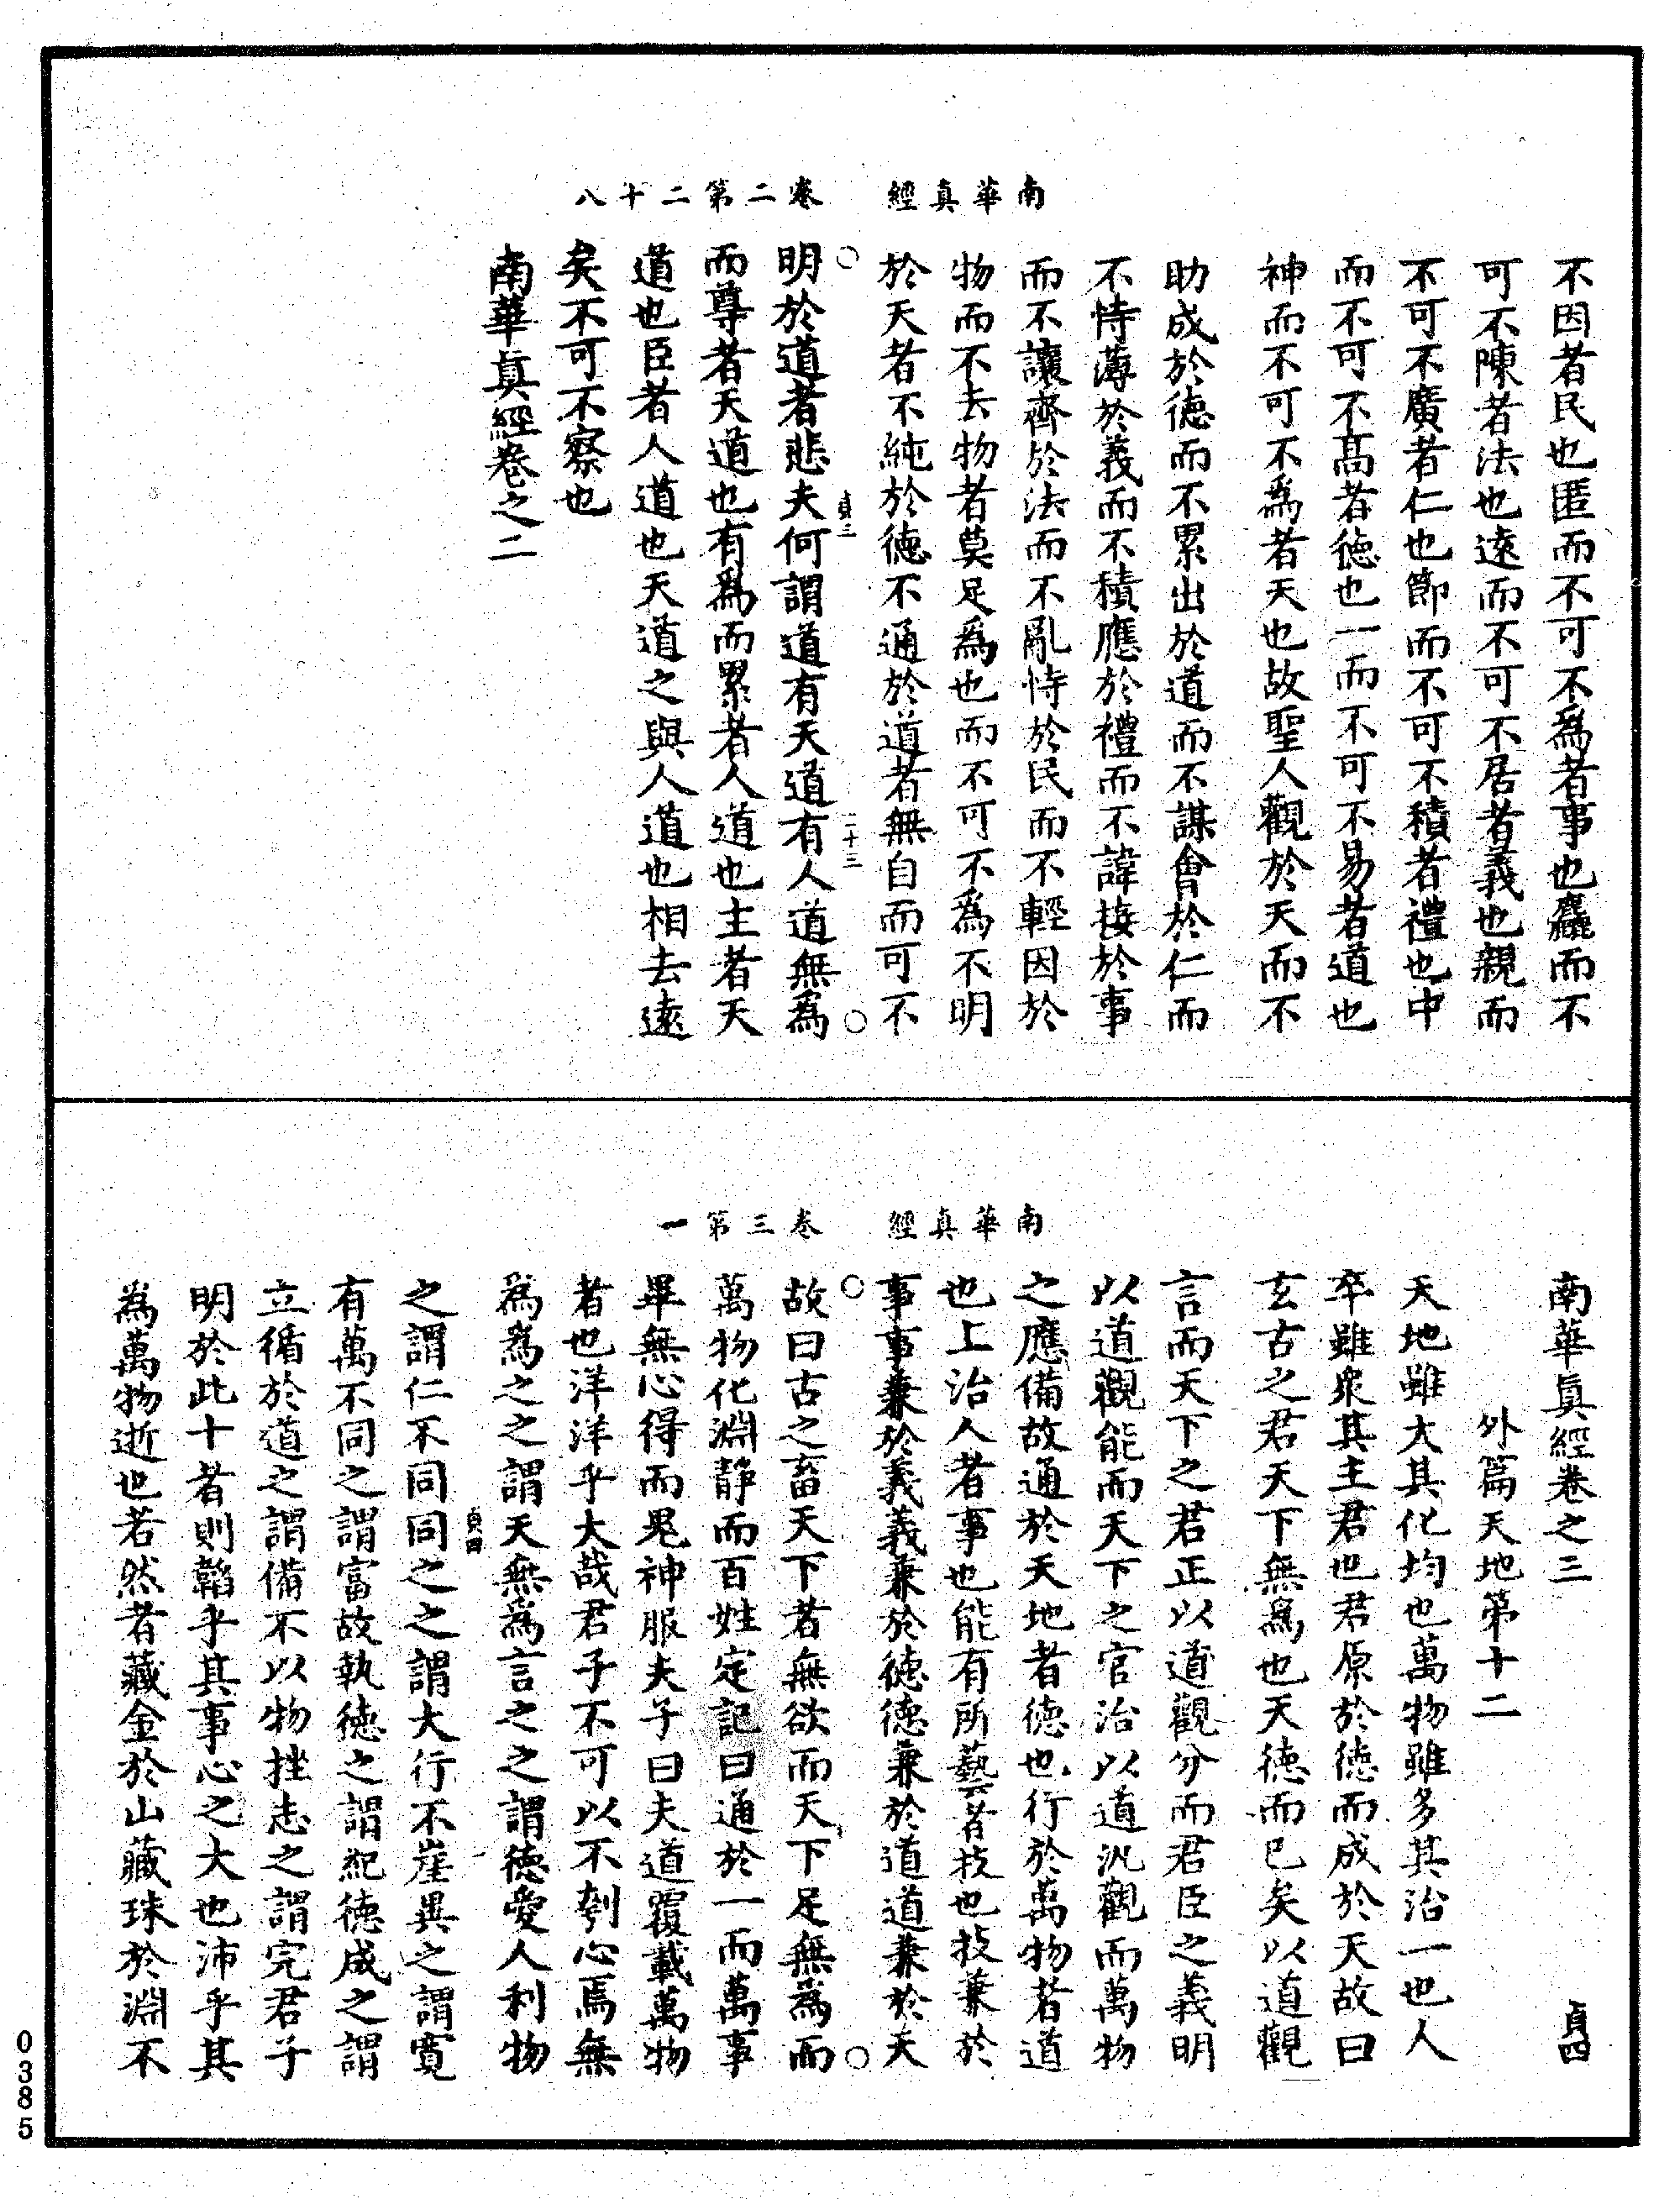 南華真經　卷二第二十八
不因者民也匿而不可不為者事也麤而不
可不陳者法也遠而不可不居者義也親而
不可不廣者仁也節而不可不積者禮也中
而不可不高者德也一而不可不易者道也
神而不可不為者天也故聖人觀於天而不
助成於德而不累出於道而不謀會於仁而
不恃薄於義而不積應於禮而不諱接於事
而不讓齊於法而不亂恃於民而不輕因於
物而不去物者莫足為也而不可不為不明
於天者不純於德不通於道者無自而可不
貞三　二十三
明於道者悲夫何謂道有天道有人道無為
而尊者天道也有為而累者人道也主者天
道也臣者人道也天道之與人道也相去遠
矣不可不察也
南華真經卷之二
南華真經　卷三第一
南華真經卷之三　貞四
外篇天地第十二
天地雖大其化均也萬物雖多其治一也人
卒雖衆其主君也君原於德而成於天故曰
玄古之君天下無為也天德而已矣以道觀
言而天下之君正以道觀分而君臣之義明
以道觀能而天下之官治以道汎觀而萬物
之應備故通於天地者德也行於萬物者道
也上治人者事也能有所藝者技也技兼於
事事兼於義義兼於德德兼於道道兼於天
故曰古之畜天下者無欲而天下足無為而
萬物化淵靜而百姓定記曰通於一而萬事
畢無心得而鬼神服夫子曰夫道覆載萬物
者也洋洋乎大哉君子不可以不刳心焉無
為為之之謂天無為言之之謂德愛人利物
貞四
之謂仁不同同之之謂大行不崖異之謂寬
有萬不同之謂富故執德之謂紀德成之謂
立循於道之謂備不以物挫志之謂完君子
明於此十者則韜乎其事心之大也沛乎其
為萬物逝也若然者藏金於山藏珠於淵不
0385